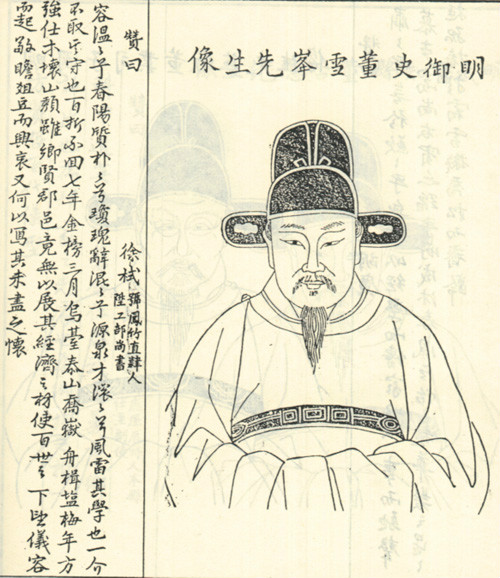 明御史董雪岑先生像
贊曰
徐栻
號鳳竹直隸人
陞工部尚書
容溫〻乎春陽質朴〻兮瓊瑰辭混〻乎源泉才凜〻兮風雷其學也一介
不取其守也百折不回七年金榜三月烏臺泰山喬嶽舟楫塩梅年方
強仕木壞山頹雖鄉賢郡邑竟無以展其經濟之材使百世之下望儀容
而起敬瞻俎豆而興哀又何以寫其未盡之懷